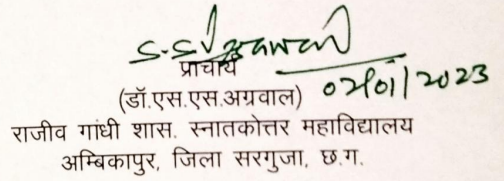 प्राचार्य
02/01/2023
(डॉ.एस.एस.अग्रवाल)
राजीव गांधी शास. स्नातकोत्तर महाविद्यालय
अम्बिकापुर, जिला सरगुजा, छ.ग.